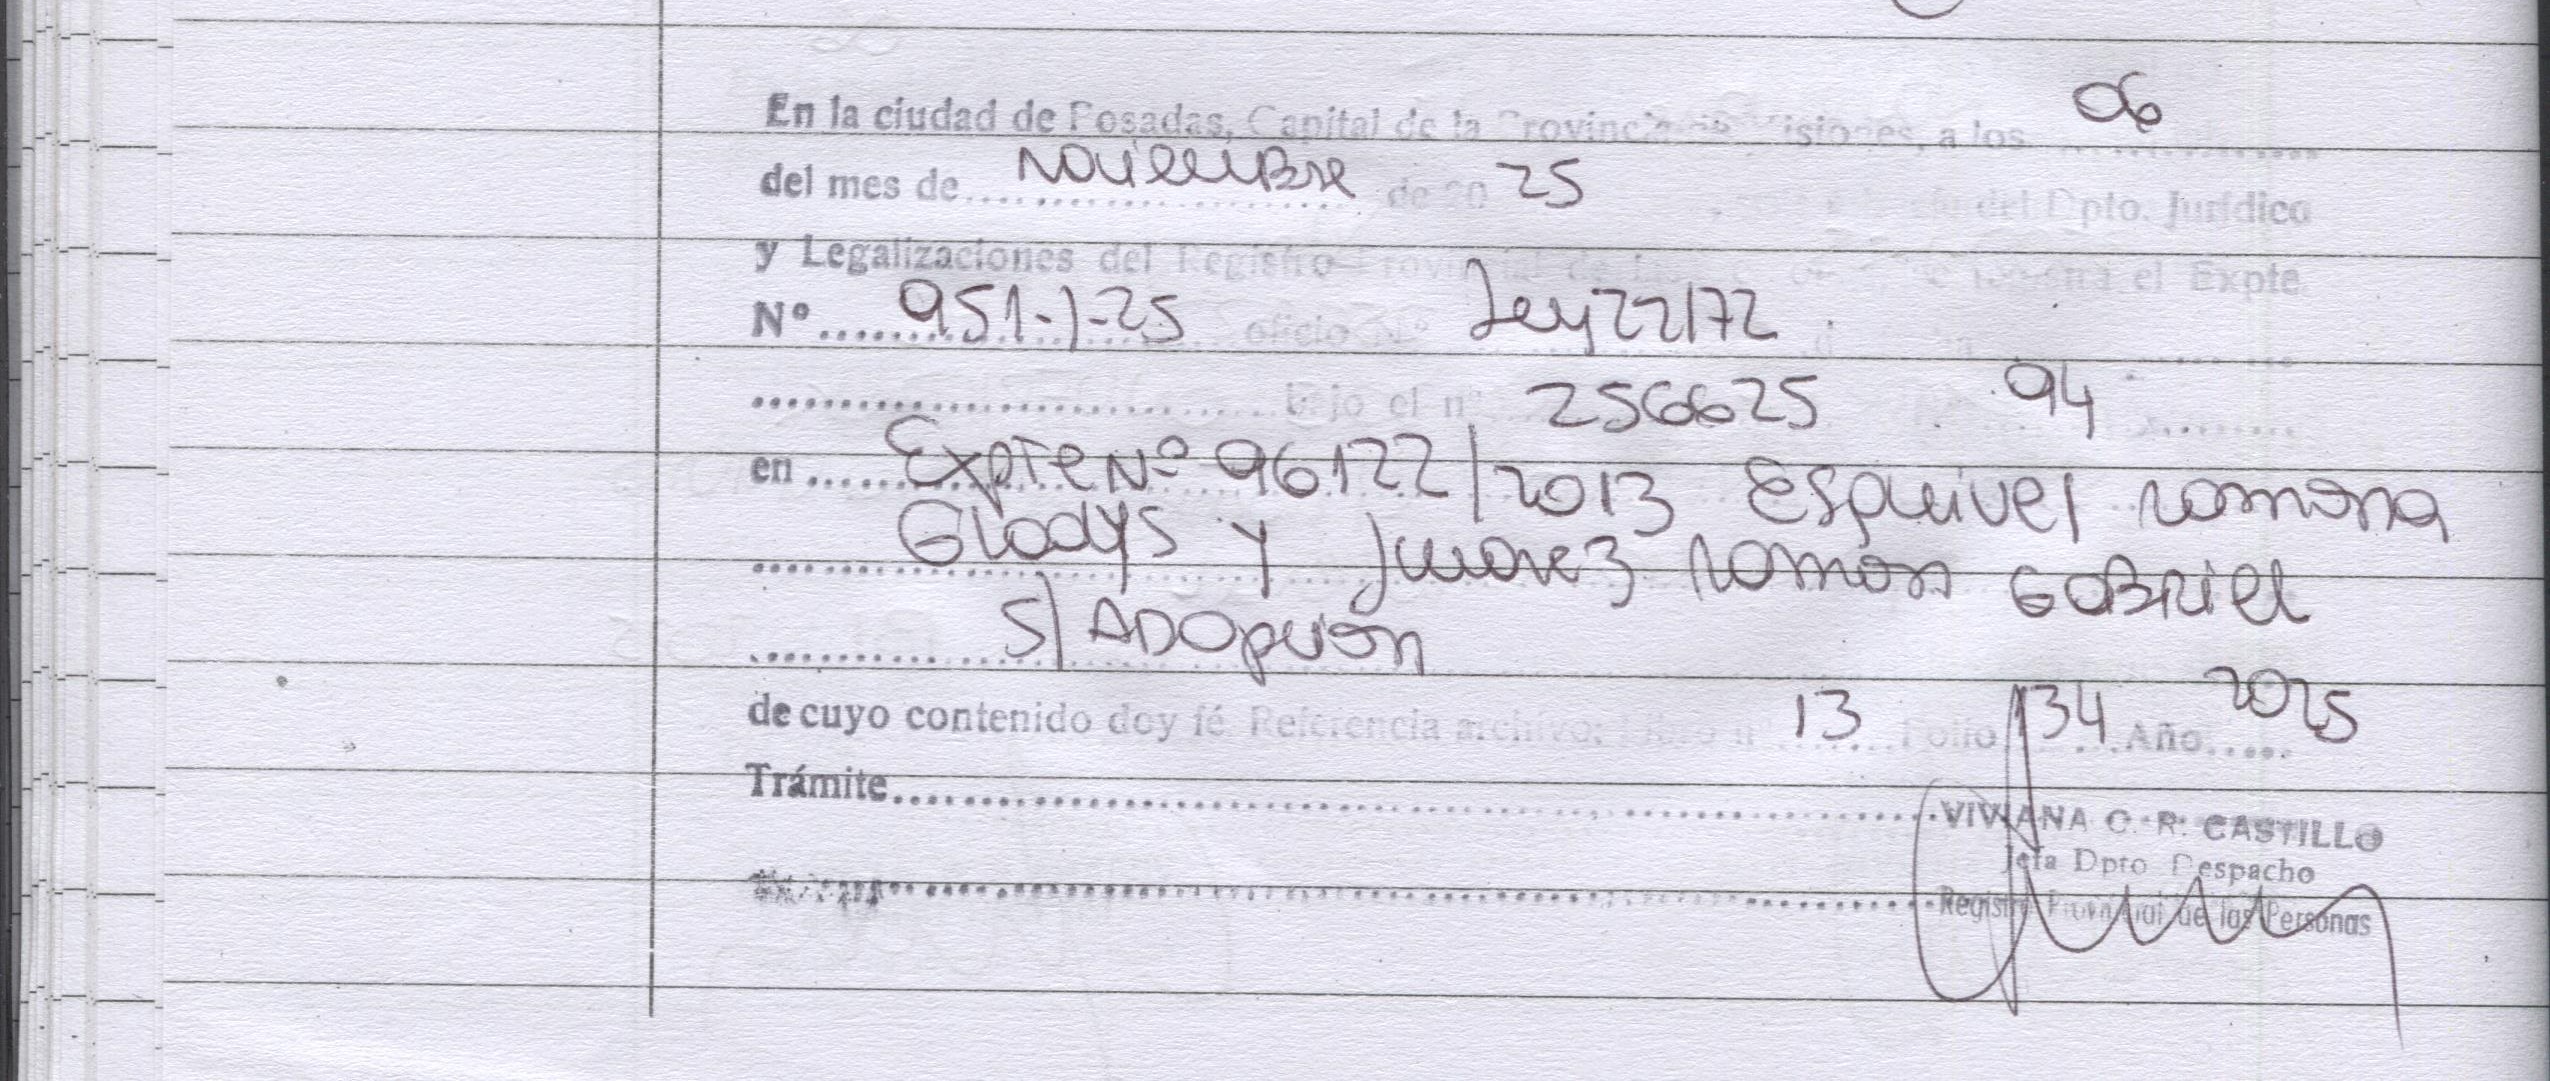 En la ciudad de Posadas, Capital de la Provincia de Misiones, a los 06
del mes de Noviembre de 20 25 del Dpto. Jurídico
y Legalizaciones del Registro Provincial de el Expte
Nº 951-J-25 oficio Nº Ley 22172
bajo el nº 256625 94
en Expte Nº 96122/2013 Esquivel Ramona
Gladys y Juarez Ramon Gabriel
S/ ADOpción
de cuyo contenido doy fé Referencia archivo: Libro nº 13 Folio 134 Año 2025
Trámite
VIVIANA C. R. CASTILLO
Jefa Dpto Despacho
Registro Provincial de las Personas